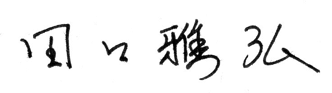 田口雅弘